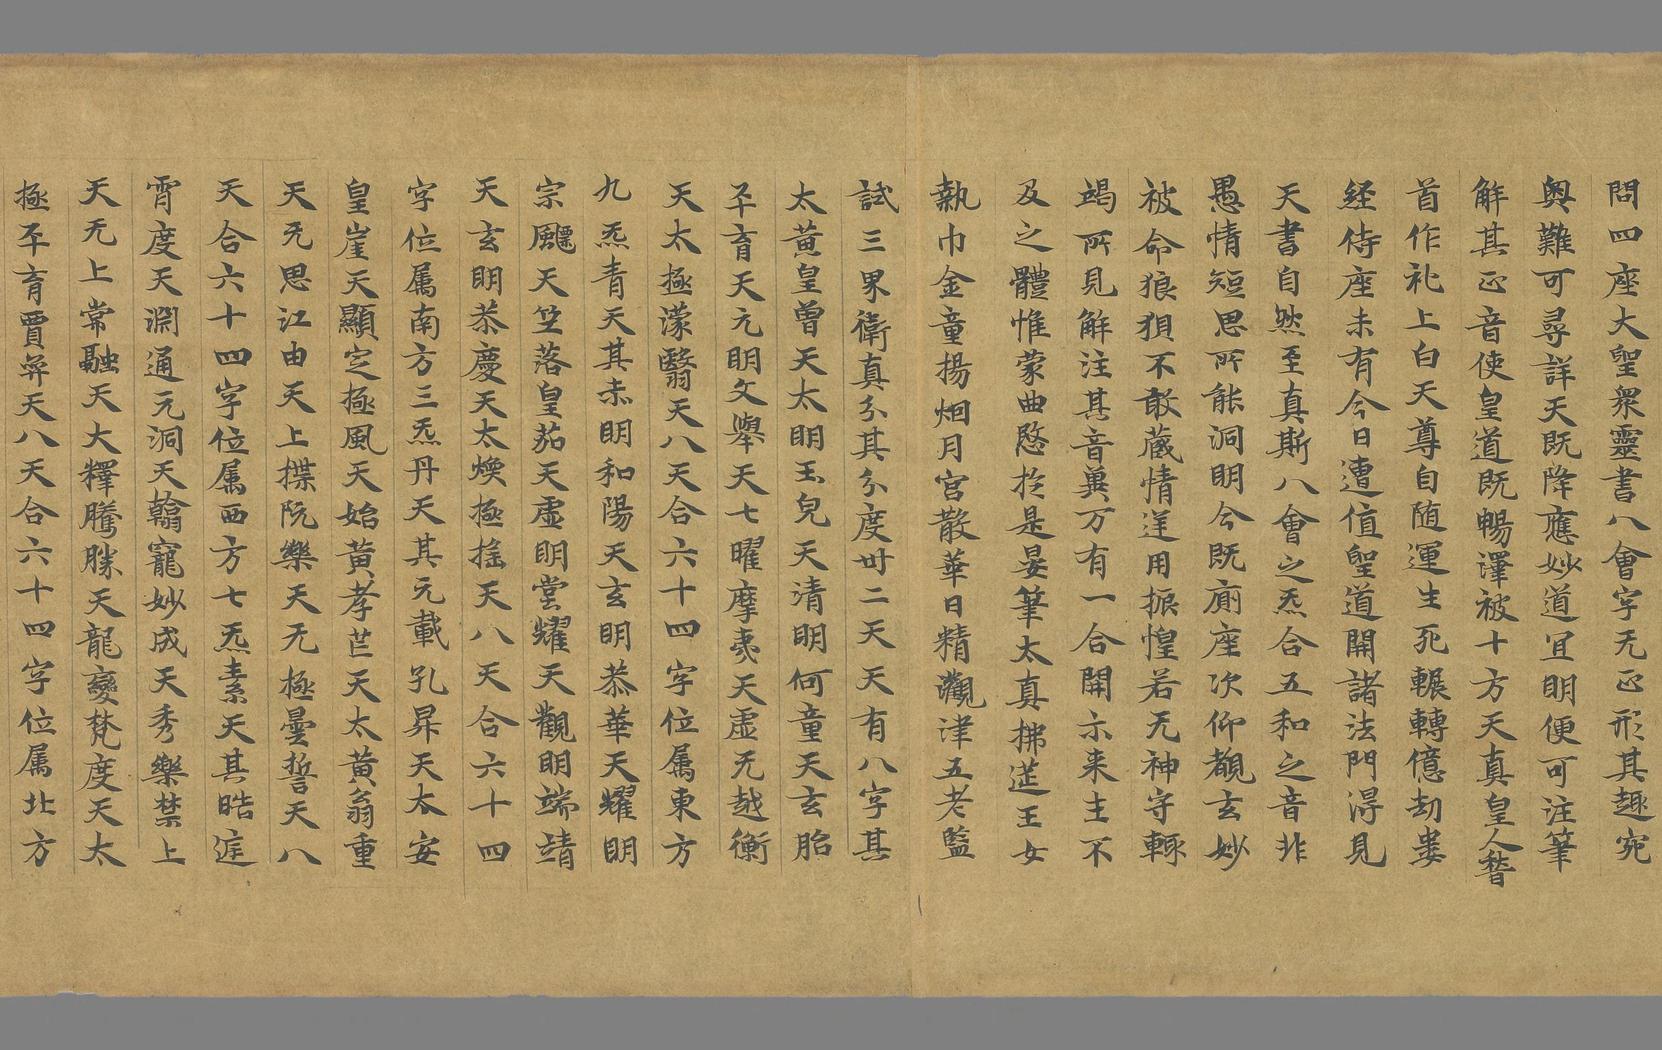 問四座大聖衆靈書八會字无正形其趣宛
奥難可尋詳天既降應妙道宜明便可注筆
解其正音使皇道既暢澤被十方天真皇人稽
首作礼上白天尊自随運生死輾轉億劫婁
経侍座未有今日遭值聖道開諸法門淂見
天書自然至真斯八會之炁合五和之音非
愚情短思所能洞明今既廁座次仰覩玄妙
被命狼狽不敢蔵情逆用振惶若无神守輒
竭所見解注其音兾万有一合開示来生不
及之體惟蒙曲愍扵是晏筆太真拂莚王女
執巾金童揚烟月宮散華日精灌津五老監
試三界衛真分其分度丗二天天有八字其
太黄皇曽天太明玉皃天清明何童天玄胎
平育天元明文舉天七曜摩夷天虛无越衡
天太極濛翳天八天合六十四字位属東方
九炁青天其赤明和陽天玄明恭華天耀明
宗飄天笁落皇茄天虛明堂耀天觀明端靖
天玄明恭慶天太煥極揺天八天合六十四
字位属南方三炁丹天其元載孔昇天太安
皇崖天顯定極風天始黄孝芒天太黄翁重
天无思江由天上揲阮樂天无極曇誓天八
天合六十四字位属西方七炁素天其晧庭
霄度天淵通元洞天翰寵妙成天秀樂禁上
天无上常融天大釋騰勝天龍變梵度天太
極平育賈弈天八天合六十四字位属北方